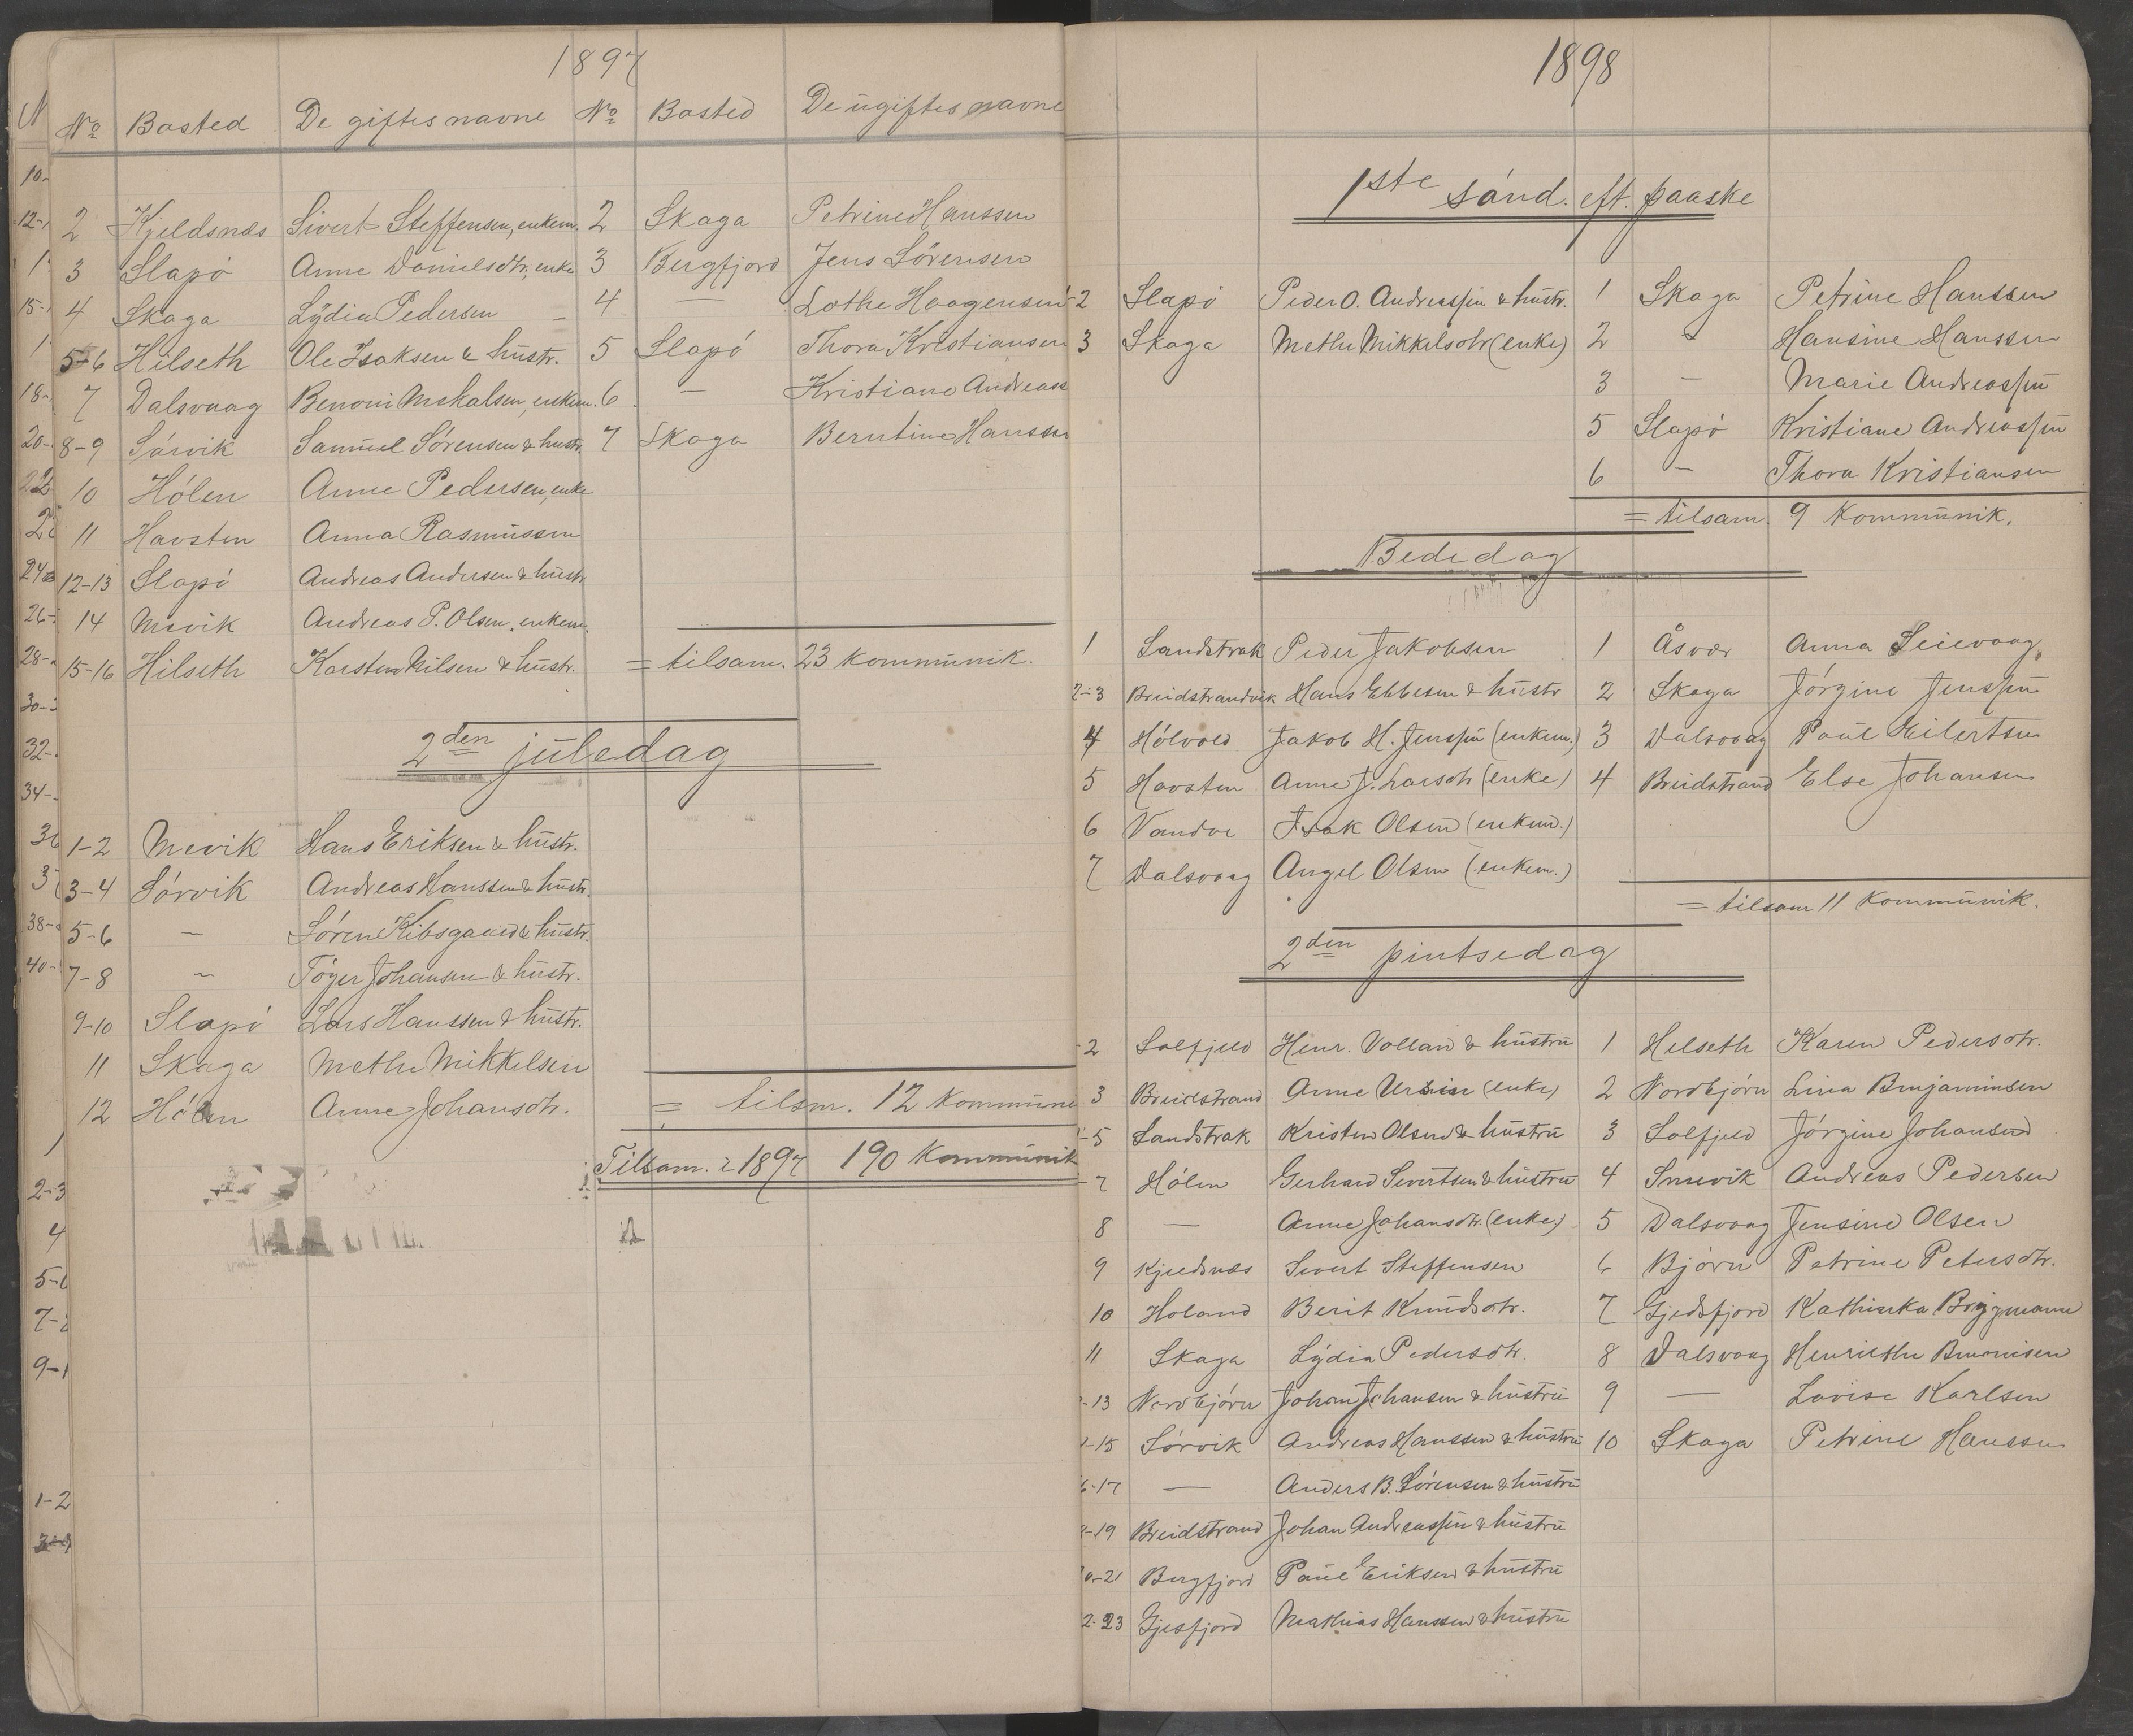 1897
No Bosted De giftes navne No Bosted De ugiftes navne
2 Kjeldsnæs Sivert Steffensen, enkem. 2 Skaga Petrine Hanssen
3 Slapö Anne Danielsdtr, enke 3 Bergfjord Jens Sörensen
4 Skaga Lydia Pedersen – 4 — Lothe Haagensen
5-6 Hilseth Ole Isaksen & hustr. 5 Slapö Thora Kristiansen
7 Dalsvaag Benoni Mikalsen, enkem. 6 — Kristiane Andreass
8-9 Sörvik Samuel Sörensen & hustr. 7 Skaga Berntine Hanssen
10 Hölen Anne Pedersen, enke
11 Havsten Anna Rasmussen
12-13 Slapö Andreas Andersen & hustr.
14 Mevik Andreas P. Olsen, enkem.
15-16 Hilseth Karsten Nilsen & hustr. = tilsam. 23 kommunik.
2den juledag
1-2 Mevik Hans Eriksen & hustr.
3-4 Sörvik Andreas Hanssen & hustr.
5-6 — Sören Kibsgaard & hustr.
7-8 — Töger Johansen & hustr.
9-10 Slapö Lars Hanssen & hustr.
11 Skaga Methe Mikkelsen
12 Hölen Anne Johansdtr. = tilsm. 12 kommune
Tilsam. i 1897 190 kommunik
1898
1ste sönd. eft. paaske
2 Slapö Peder O. Andreassen & hustr. 1 Skaga Petrine Hanssen
3 Skaga Methe Mikkelsdtr (enke) 2 – Hansine Hanssen
3 — Marie Andreassen
5 Slapö Kristiane Andreassen
6 — Thora Kristiansen
= tilsam. 9 kommunik.
Bededag
1 Sandstrak Peder Jakobsen 1 Åsvær Anna Leievaag
2-3 Breidstrandvik Hans Ebbesen & hustr 2 Skaga Jörgine Jenssen
4 Hölvold Jakob H. Jenssen (enkem.) 3 Dalsvaag Paul Eilertsen
5 Havsten Anne J. Larsdtr (enke) 4 Breidstrand Else Johansen
6 Vandve Isak Olsen (enkem.)
7 Dalsvaag Angel Olsen (enkem.)
= tilsam 11 kommunik.
2den pintsedag
-2 Solfjeld Henr. Volland & hustru 1 Helseth Karen Pedersdtr.
3 Breidstrand Anne Ursin (enke) 2 Nordbjörn Lina Benjaminsen
-5 Sandstrak Kristen Olsen & hustru 3 Solfjeld Jörgine Johansen
-7 Hölen Gerhard Sivertsen & hustru 4 Smevik Andreas Pedersen
8 — Anne Johansdtr. (enke) 5 Dalsvaag Jensine Olsen
9 Kjeldsnæs Sivert Steffensen 6 Björn Petrine Petersdtr.
10 Holand Berit Knudsdtr. 7 Gjedsfjord Kathinka Bryggmann
11 Skaga Lydia Pedersdtr. 8 Dalsvaag Henriethe Benonisen
-13 Nordbjörn Johan Johansen & hustru 9 — Lovise Karlsen
-15 Sörvik Andreas Hanssen & hustru 10 Skaga Petrine Hanssen
6-17 — Anders B. Sörensen & hustru
-19 Breidstrand Johan Andreassen & hustru
0-21 Bergfjord Paul Eriksen & hustru
2-23 Gjesfjord Mathias Hanssen & hustru